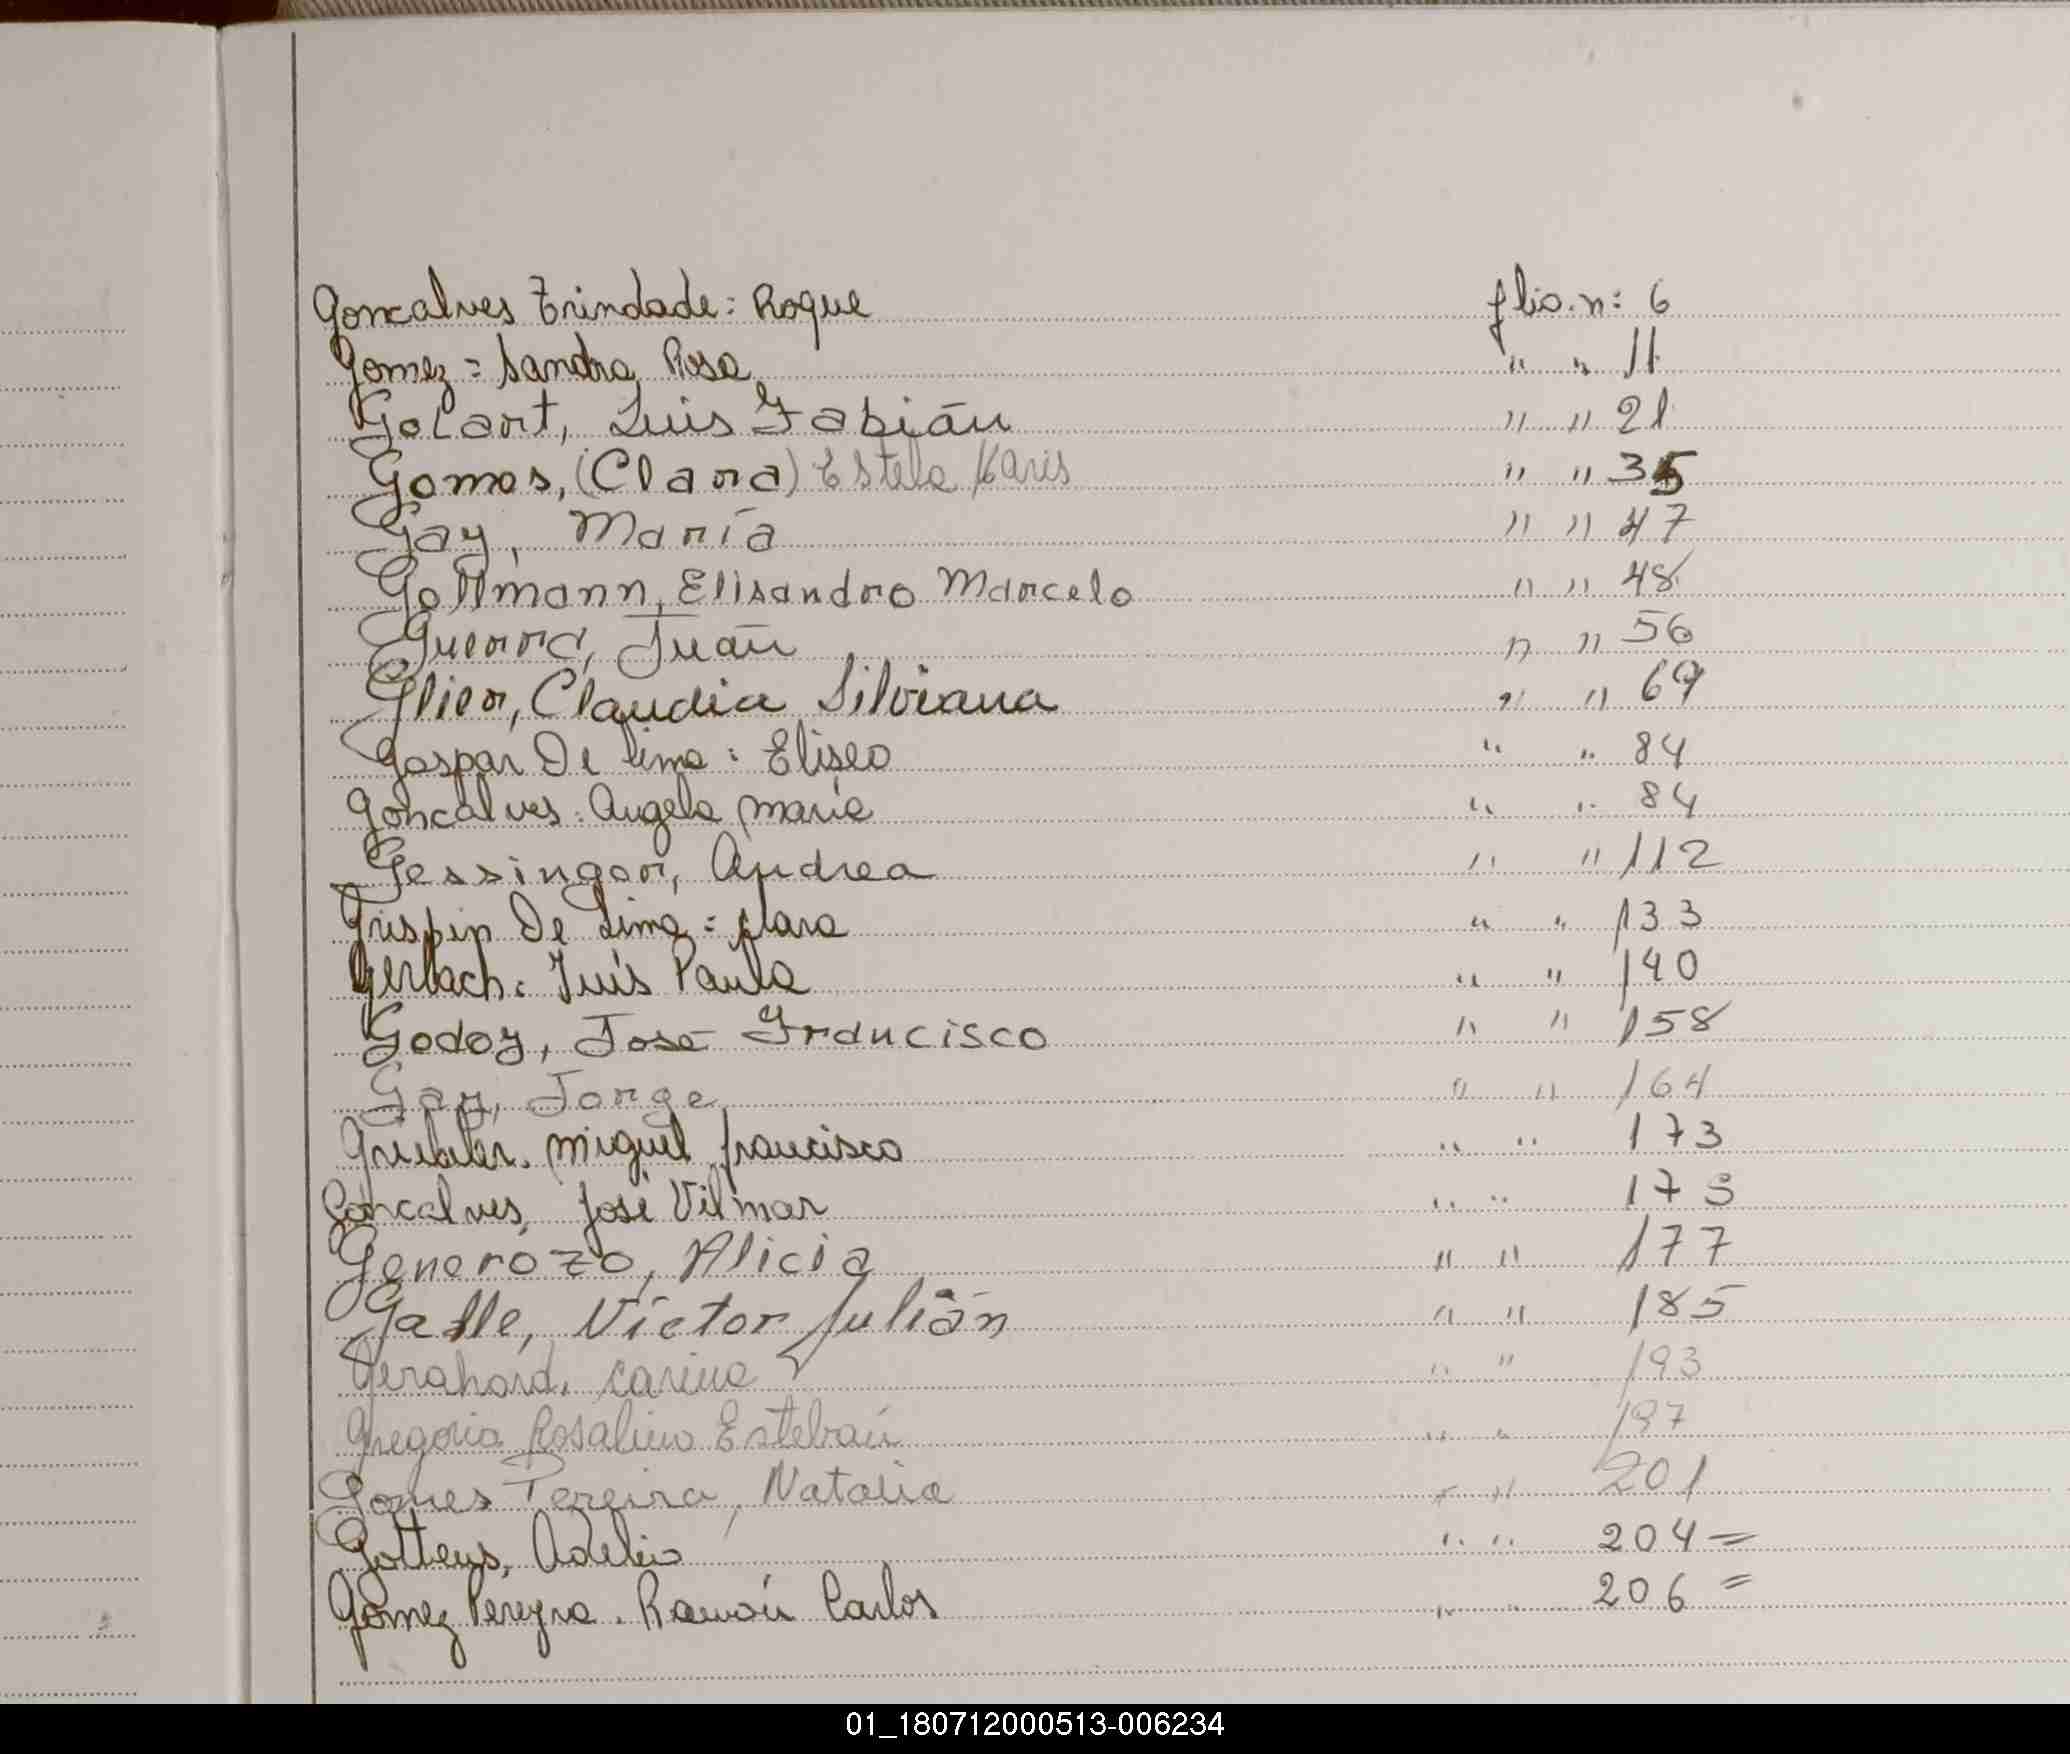 Goncalves Trindade: Roque flio. n: 6
Gomez = Sandra Rosa " " 11
Golart, Luis Fabián " " 21
Gomes, (Clara) Estela Karis " " 35
Gay, María " " 47
Gollmann, Elisandro Marcelo " " 48
Guerra, Juán " " 56
Glier, Claudia Silviana " " 69
Gaspar De lima: Eliseo " " 84
Goncalves: Angela maria " " 84
Gessinger, Andrea " " 112
Grispin De Lima = clara " " 133
Gerlach: Luis Paulo " " 140
Godoy, José Francisco " " 158
Gay, Jorge " " 164
Griebeler. miguel francisco " " 173
Goncalves, José Vilmar " " 173
Generózo, Alicia " " 177
Galle, Víctor Julián " " 185
Gerahard. carina " " 193
Gregorio Rosalino Estebán " " 197
Gomes Pereira, Natalia " " 201
Gottems, Adelio " " 204 =
Gomez Pereyra. Ramón Carlos " " 206 =
01_180712000513-006234